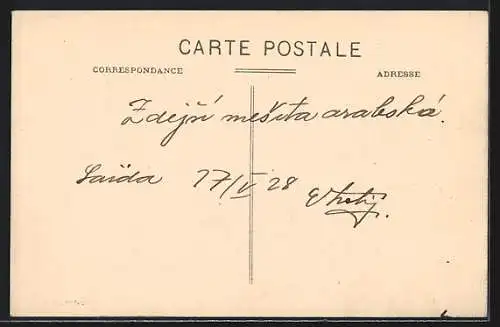 CARTE POSTALE
CORRESPONDANCE
ADRESSE
Zdejší mešita arabská.
Saïda 17/V 28